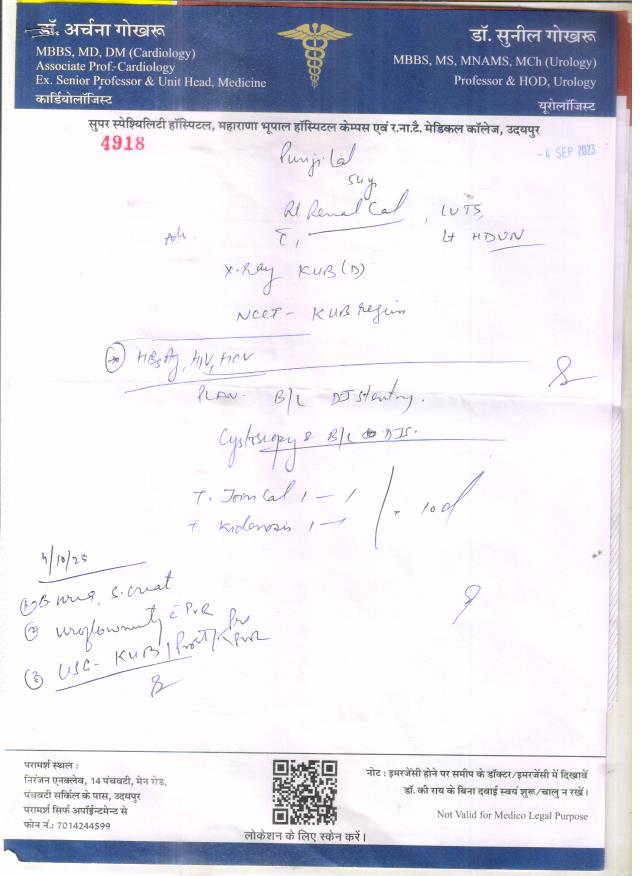 डॉ. अर्चना गोखरू
MBBS, MD, DM (Cardiology)
Associate Prof.-Cardiology
Ex. Senior Professor & Unit Head, Medicine
कार्डियोलॉजिस्ट
डॉ. सुनील गोखरू
MBBS, MS, MNAMS, MCh (Urology)
Professor & HOD, Urology
यूरोलॉजिस्ट
सुपर स्पेशियलिटी हॉस्पिटल, महाराणा भूपाल हॉस्पिटल केम्पस एवं र.ना.टै. मेडिकल कॉलेज, उदयपुर
4918
-4 SEP 2023
54y
Rt Renal Cal, LUTS,
Lt HDUN
Adv.
X-Ray KUB (D)
NCCT - KUB region
HBsAg, HIV, HCV
PLAN- B/L DJ Stenting.
Cystoscopy & B/L DJS.
T. 1-1
T. 1-1
10d
4/10/23
① B. urea, S. creat
② uroflowmetry c̄ PVR
③ USG- KUB/Prost/Pre & PVR
परामर्श स्थल :
निरंजन एनक्लेव, 14 पंचवटी, मेन रोड,
पंचवटी सर्किल के पास, उदयपुर
परामर्श सिर्फ अपॉईन्टमेन्ट से
फोन नं.: 7014244599
लोकेशन के लिए स्केन करें।
नोट : इमरजेंसी होने पर समीप के डॉक्टर/इमरजेंसी में दिखावें
डॉ. की राय के बिना दवाई स्वयं शुरू/चालु न रखें।
Not Valid for Medico Legal Purpose